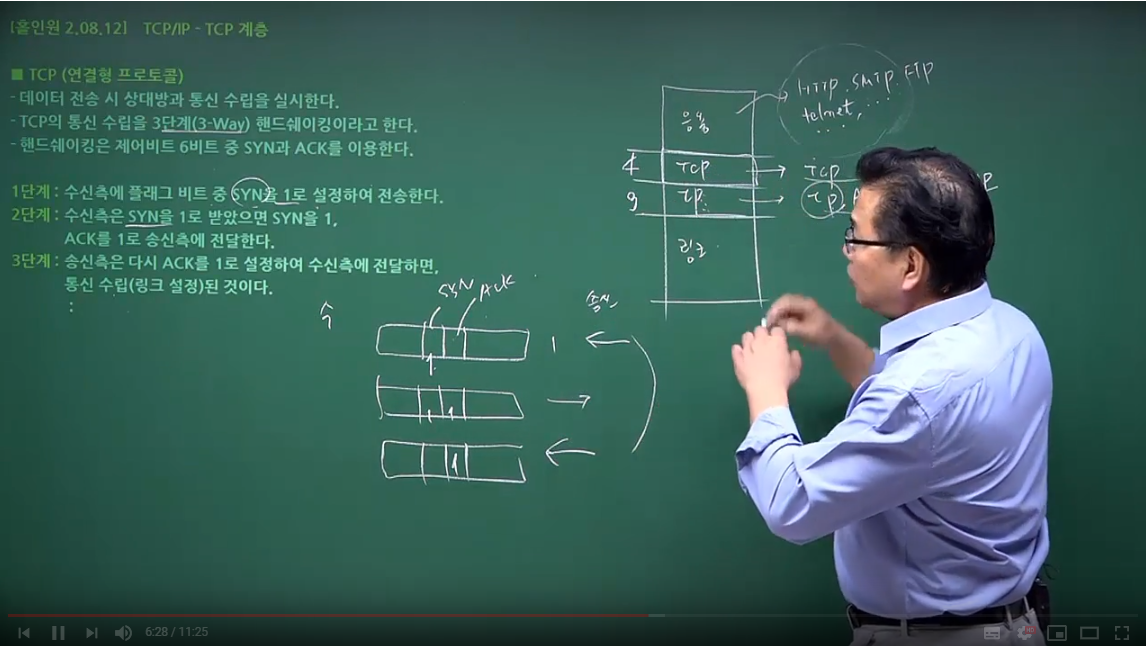 [홀인원 2.08.12] TCP/IP - TCP 계층
■ TCP (연결형 프로토콜)
- 데이터 전송 시 상대방과 통신 수립을 실시한다.
- TCP의 통신 수립을 3단계(3-Way) 핸드쉐이킹이라고 한다.
- 핸드쉐이킹은 제어비트 6비트 중 SYN과 ACK를 이용한다.
1단계 : 수신측에 플래그 비트 중 SYN을 1로 설정하여 전송한다.
2단계 : 수신측은 SYN을 1로 받았으면 SYN을 1,
ACK를 1로 송신측에 전달한다.
3단계 : 송신측은 다시 ACK를 1로 설정하여 수신측에 전달하면,
통신 수립(링크 설정)된 것이다.
:
HTTP, SMTP, FTP
telnet, ....
응용
4 TCP → TCP
IP → IP
링크
수
SYN ACK
송신
1
1
1 1
1
6:28 / 11:25